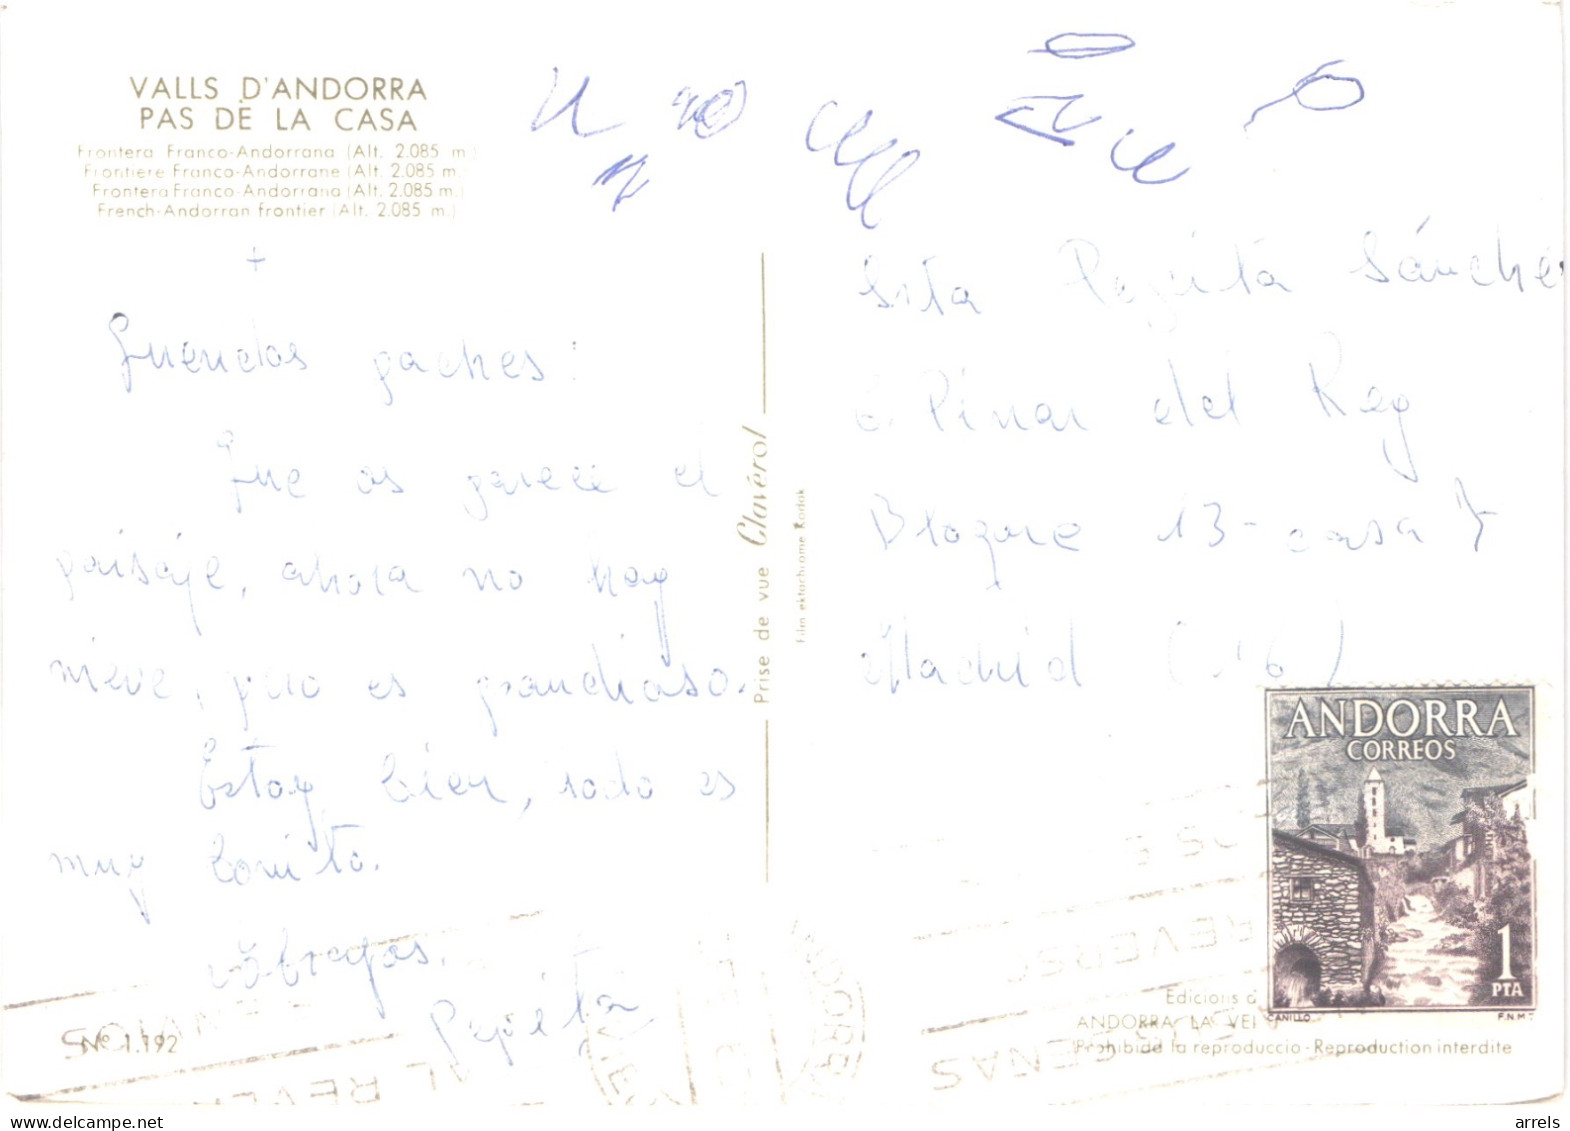 VALLS D'ANDORRA
PAS DE LA CASA
Frontera Franco-Andorrana (Alt. 2.085 m.)
Frontiere Franco-Andorrane (Alt. 2.085 m.)
Frontera Franco-Andorrana (Alt. 2.085 m.)
French-Andorran frontier (Alt. 2.085 m.)
+
Que os parece el
paisaje, ahora no hay
nieve, pero es grandioso.
Estoy bien, todo es
muy bonito.
Abrazos.
Pepita
Nº 1.192
Prise de vue Claverol
Film ektachrome Kodak
Srta Pepita Sánchez
Pinar del Rey
Bloque 13 - casa 7
Madrid (16)
ANDORRA
CORREOS
1
PTA
CANILLO
F.N.M.T
Edicions d
ANDORRA LA VEI
Prohibida la reproduccio - Reproduction interdite
AL REVER
REVERSO
SENAS
arrels